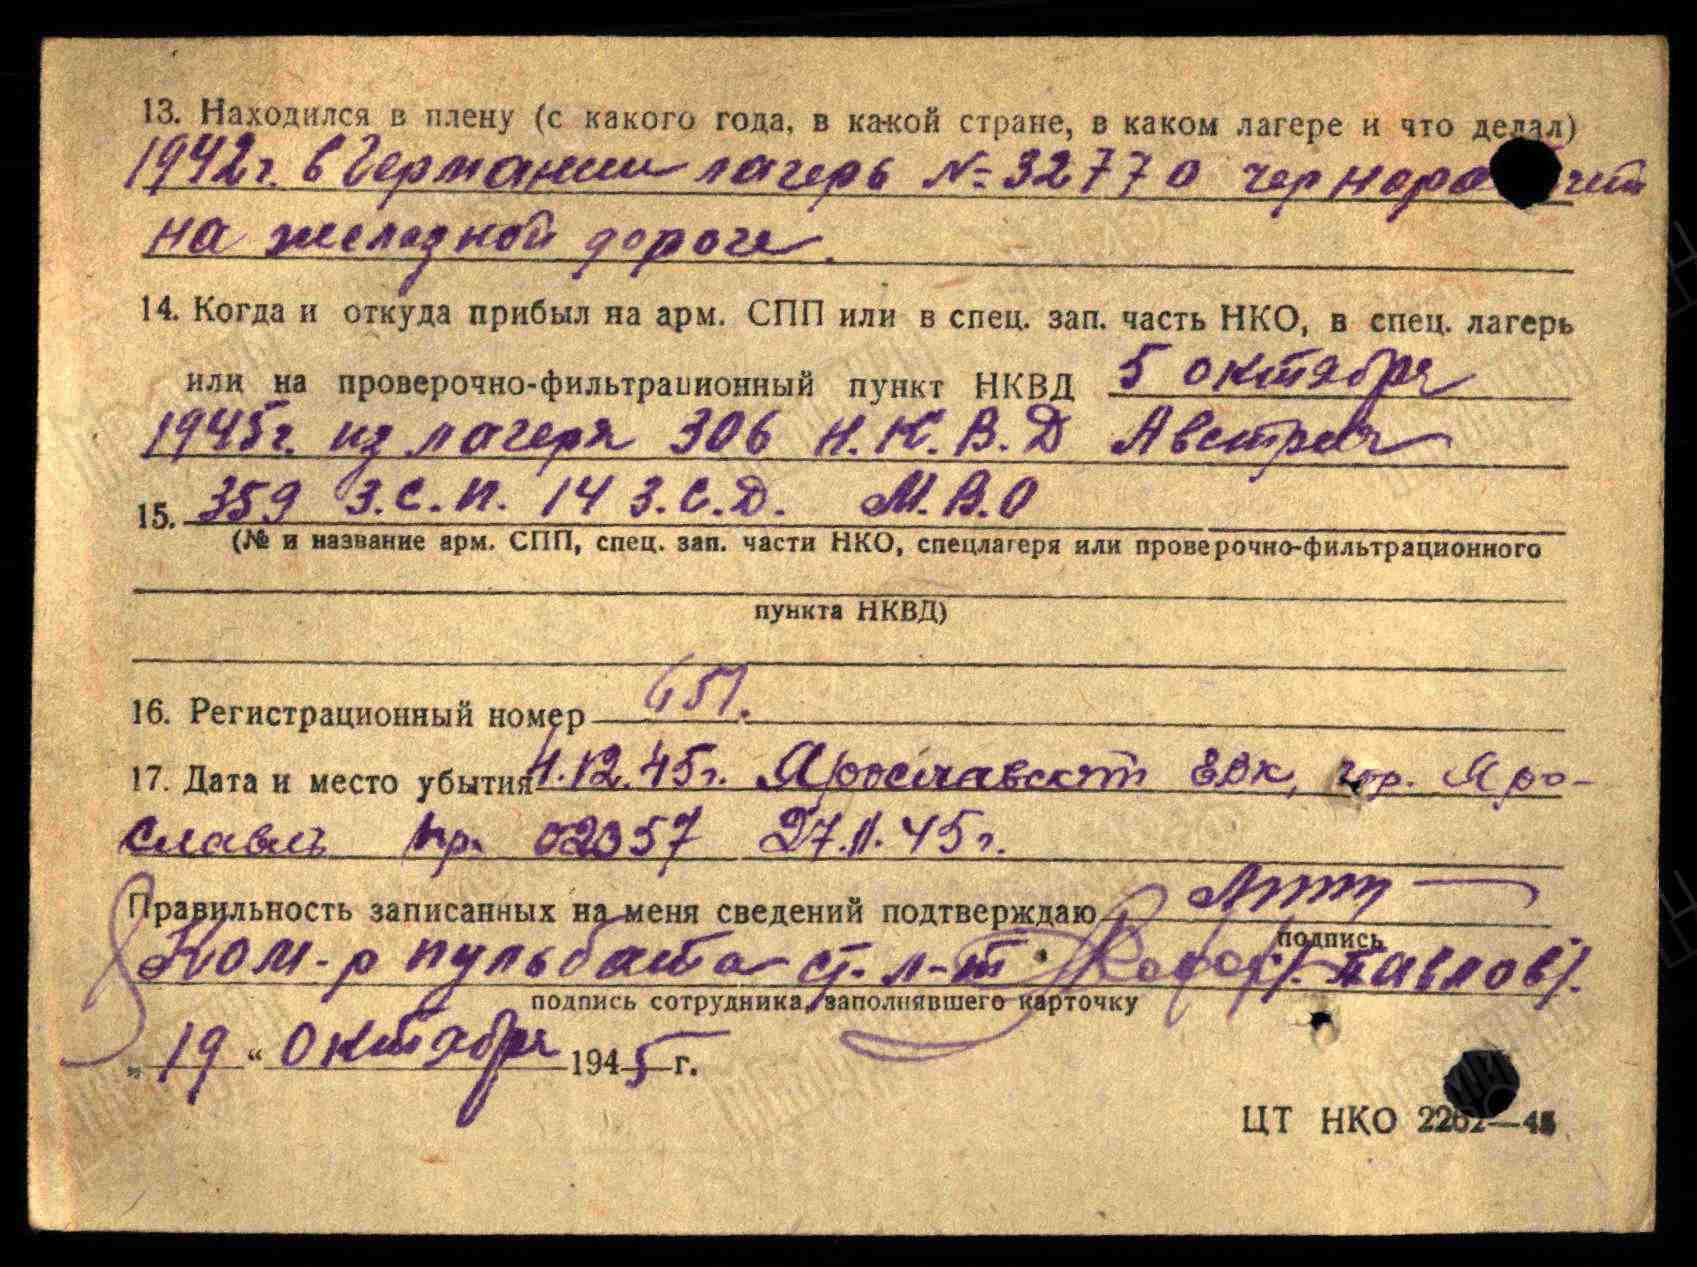 13. Находился в плену (с какого года, в какой стране, в каком лагере и что делал)
1942г. в Германии лагерь № 32770 чернора
на железной дороге.
14. Когда и откуда прибыл на арм. СПП или в спец. зап. часть НКО, в спец. лагерь
или на проверочно-фильтрационный пункт НКВД 5 октября
1945г. из лагеря 306 Н.К.В.Д Австрия
15. 359 З.С.П. 14 З.С.Д. М.В.О
(№ и название арм. СПП, спец. зап. части НКО, спецлагеря или проверочно-фильтрационного
пункта НКВД)
16. Регистрационный номер 651.
17. Дата и место убытия 4.12.45г. Ярославский ГВК, гор. Яро-
славль пр. 02357 27.11.45г.
Правильность записанных на меня сведений подтверждаю
подпись
Ком-р пульбата ст. л-т /Павлов/.
подпись сотрудника, заполнявшего карточку
„ 19 “ Октября 1945 г.
ЦТ НКО 2262—45